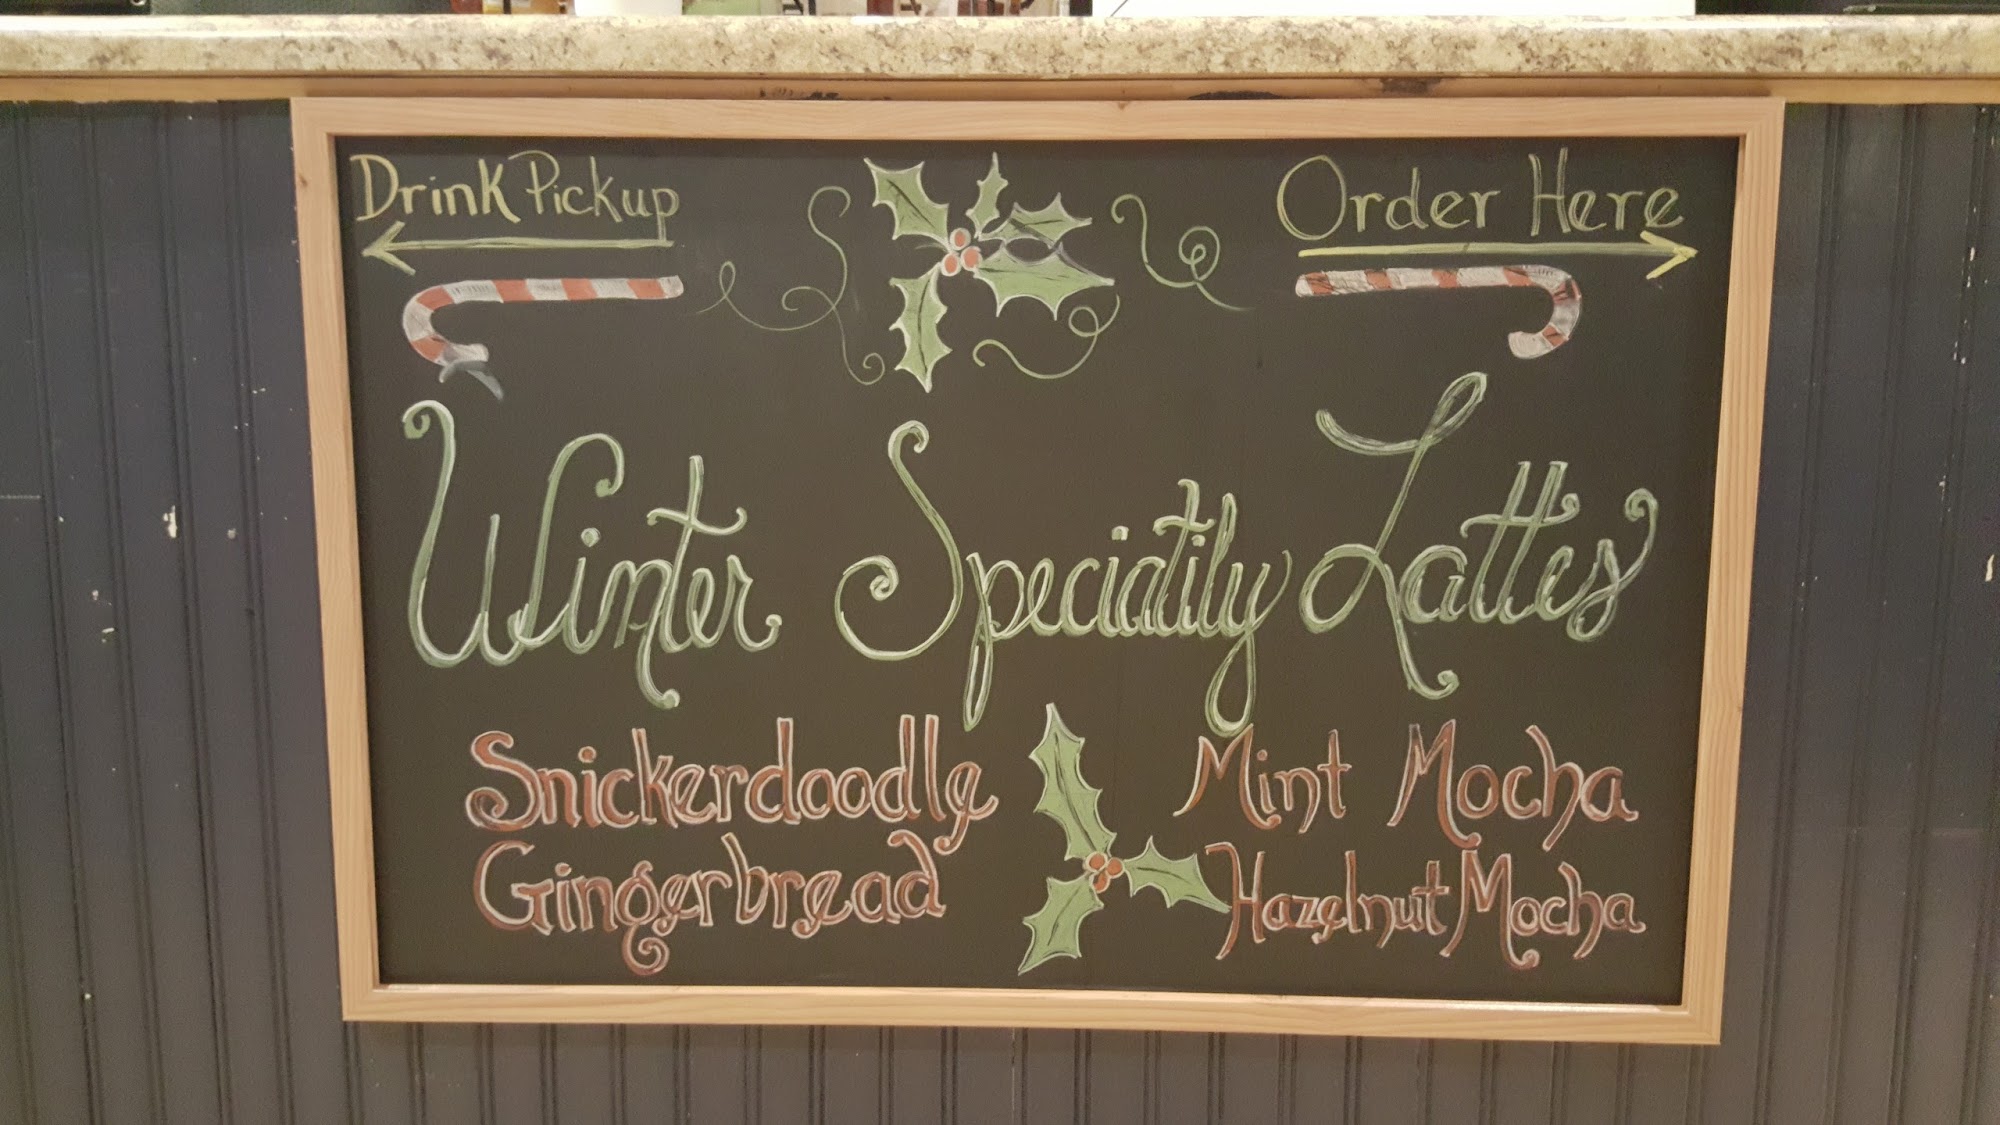 Drink Pickup
Order Here
Winter Speciatily Lattes
Snickerdoodle
Gingerbread
Mint Mocha
Hazelnut Mocha